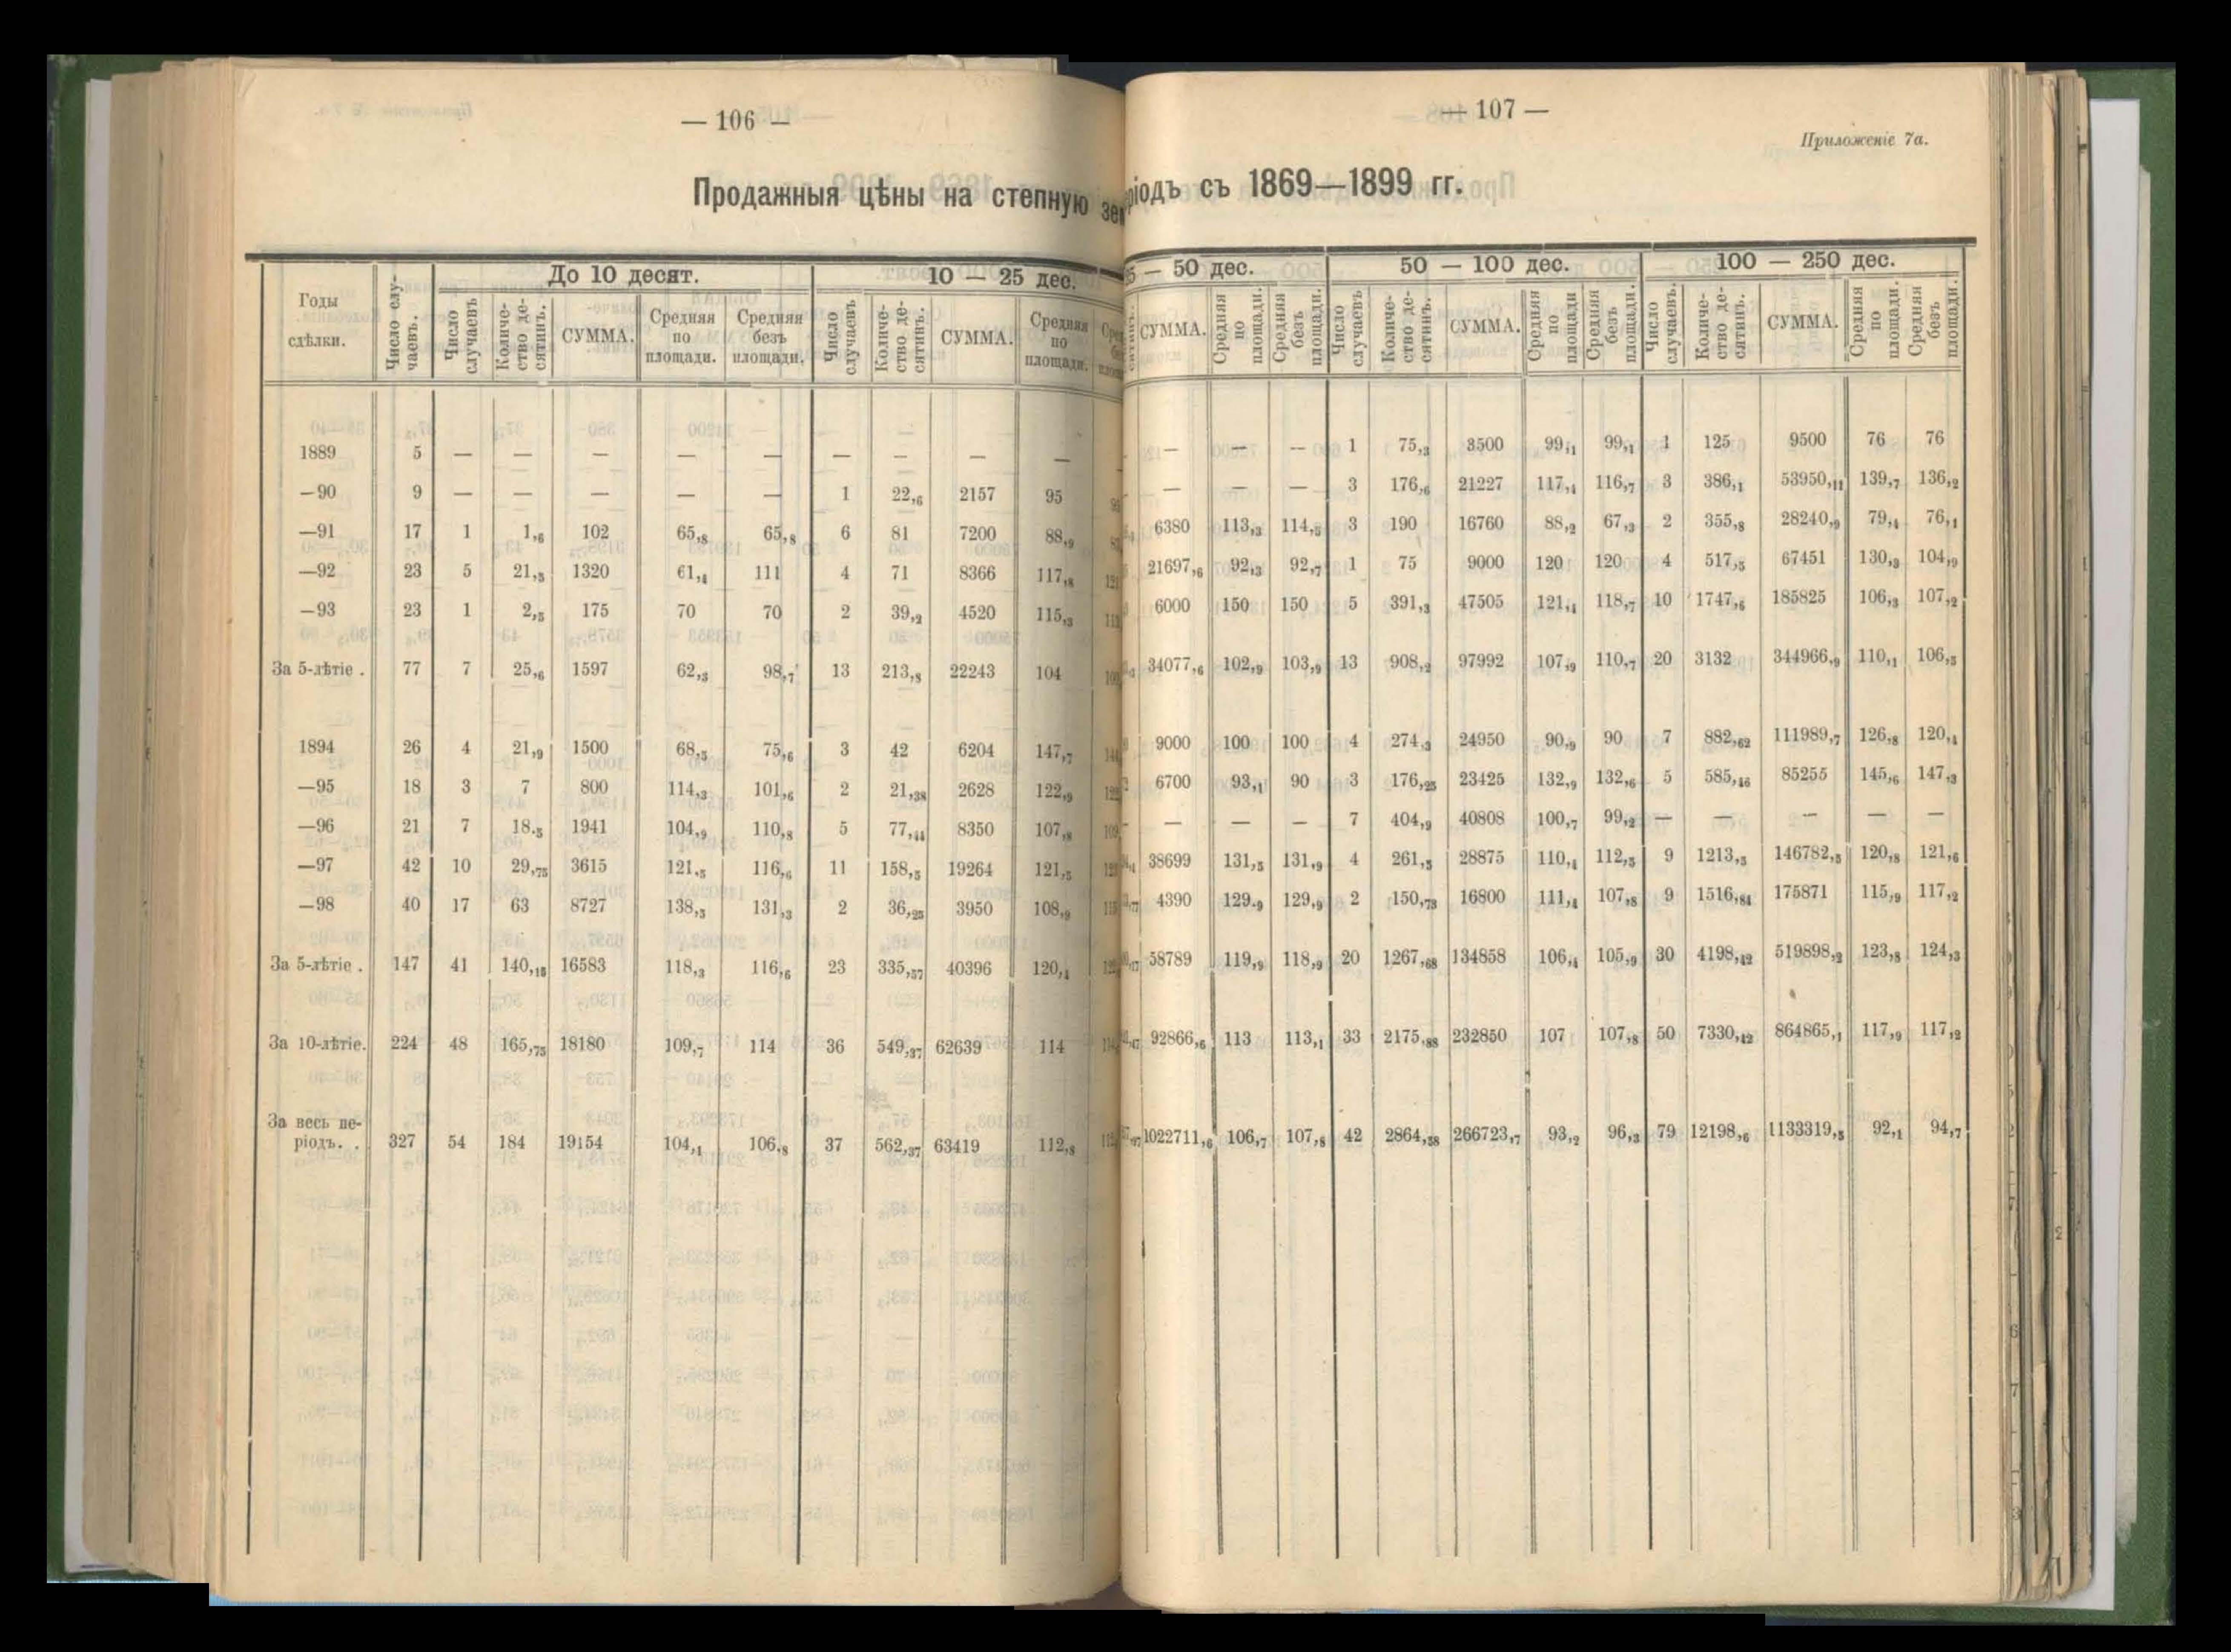 — 106 —
Продажныя цѣны на степную
Годы сдѣлки.
Число слу-чаевъ.
До 10 десят.
Число случаевъ
Количе-ство де-сятинъ.
СУММА.
Средняя по площади.
Средняя безъ площади.
10 — 25 дес.
Число случаевъ
Количе-ство де-сятинъ.
СУММА.
Средняя по площади.
1889 5 — — — — — — — — —
—90 9 — — — — — 1 22,6 2157 95
—91 17 1 1,6 102 65,8 65,8 6 81 7200 88,9
—92 23 5 21,5 1320 61,4 111 4 71 8366 117,8
—93 23 1 2,5 175 70 70 2 39,2 4520 115,3
За 5-лѣтіе . 77 7 25,6 1597 62,3 98,7 13 213,8 22243 104
1894 26 4 21,9 1500 68,5 75,6 3 42 6204 147,7
—95 18 3 7 800 114,3 101,6 2 21,38 2628 122,9
—96 21 7 18.5 1941 104,9 110,8 5 77,44 8350 107,8
—97 42 10 29,75 3615 121,5 116,6 11 158,5 19264 121,5
—98 40 17 63 8727 138,5 131,3 2 36,25 3950 108,9
За 5-лѣтіе . 147 41 140,15 16583 118,3 116,6 23 335,57 40396 120,4
За 10-лѣтіе. 224 48 165,75 18180 109,7 114 36 549,37 62639 114
За весь пе-
ріодъ. . 327 54 184 19154 104,1 106,8 37 562,37 63419 112,8
— 107 —
Приложеніе 7а.
ріодъ съ 1869—1899 гг.
— 50 дес.
СУММА.
Средняя по площади.
Средняя безъ площади.
50 — 100 дес.
Число случаевъ
Количе-ство де-сятинъ.
СУММА.
Средняя по площади
Средняя безъ площади.
100 — 250 дес.
Число случаевъ.
Количе-ство де-сятинъ.
СУММА.
Средняя по площади.
Средняя безъ площади.
— — — 1 75,3 3500 99,1 99,1 1 125 9500 76 76
— — — 3 176,6 21227 117,4 116,7 3 386,1 53950,11 139,7 136,2
6380 113,3 114,5 3 190 16760 88,2 67,3 2 355,8 28240,9 79,4 76,1
21697,6 92,3 92,7 1 75 9000 120 120 4 517,5 67451 130,3 104,9
6000 150 150 5 391,3 47505 121,4 118,7 10 1747,6 185825 106,3 107,2
34077,6 102,9 103,9 13 908,2 97992 107,9 110,7 20 3132 344966,9 110,1 106,5
9000 100 100 4 274,3 24950 90,9 90 7 882,62 111989,7 126,8 120,4
6700 93,1 90 3 176,25 23425 132,9 132,6 5 585,46 85255 145,6 147,3
— — — 7 404,9 40808 100,7 99,2 — — — — —
38699 131,5 131,9 4 261,5 28875 110,4 112,5 9 1213,5 146782,5 120,8 121,6
4390 129.9 129,9 2 150,73 16800 111,4 107,8 9 1516,84 175871 115,9 117,2
58789 119,9 118,9 20 1267,68 134858 106,4 105,9 30 4198,42 519898,2 123,8 124,3
92866,6 113 113,1 33 2175,88 232850 107 107,8 50 7330,42 864865,1 117,9 117,2
1022711,6 106,7 107,8 42 2864,38 266723,7 93,2 96,3 79 12198,6 1133319,5 92,1 94,7